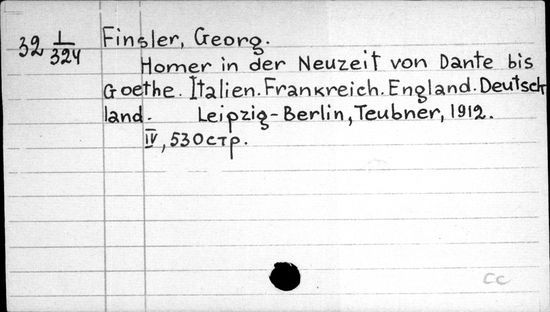 32 1/324
Finsler, Georg.
Homer in der Neuzeit von Dante bis
Goethe. Italien. Frankreich. England. Deutsch
land. Leipzig-Berlin, Teubner, 1912.
IV, 530 стр.
СС